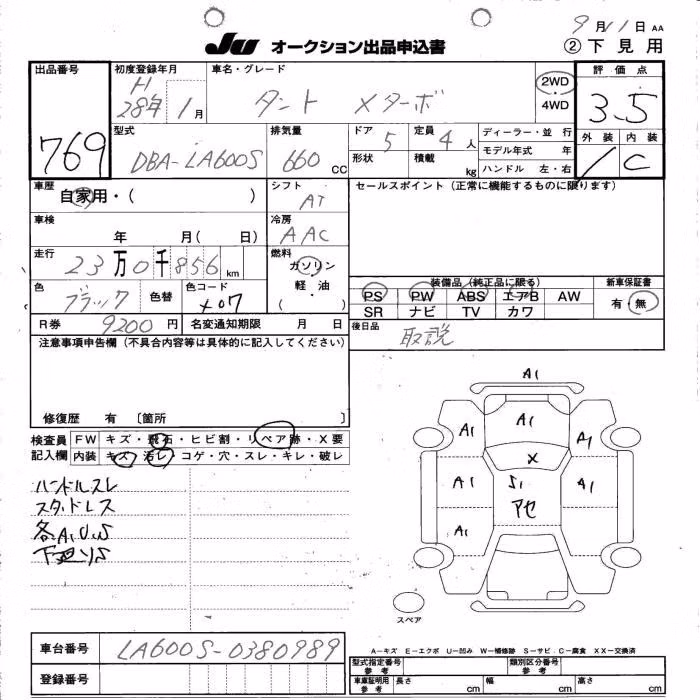 9月11日 AA
JU オークション出品申込書 ②下見用
出品番号 769
初度登録年月 H 28年 1月
車名・グレード タント Xターボ
2WD
4WD
評価点 3.5
外装 内装
1 C
型式 DBA-LA600S
排気量 660 CC
ドア 5
定員 4人
形状
積載 kg
ディーラー・並行
モデル年式 年
ハンドル 左・右
車歴 自家用・( )
シフト AT
セールスポイント(正常に機能するものに限ります)
車検 年 月( 日)
冷房 AAC
走行 23万0千856 km
燃料 ガソリン
軽油
( )
色 ブラック 色替
色コード X07
装備品(純正品に限る)
PS PW ABS エアB AW
SR ナビ TV カワ
新車保証書
有・無
R券 9200円
名変通知期限 月 日
後日品 取説
注意事項申告欄(不具合内容等は具体的に記入してください)
修復歴 有 〔箇所 〕
検査員記入欄
FW キズ・飛石・ヒビ割・リペア跡・X要
内装 キズ・汚レ・コゲ・穴・スレ・キレ・破レ
ハンドルスレ
スタッドレス
各A1.U.S
下廻りS
A1
A1 A1 A1
X
A1 S1 A1
アセ
A1
スペア
車台番号 LA600S-0380989
登録番号
A−キズ E−エクボ U−凹み W−補修跡 S−サビ C−腐食 XX−交換済
型式指定番号 参考
類別区分番号 参考
車庫証明用 参考
長さ cm
幅 cm
高さ cm